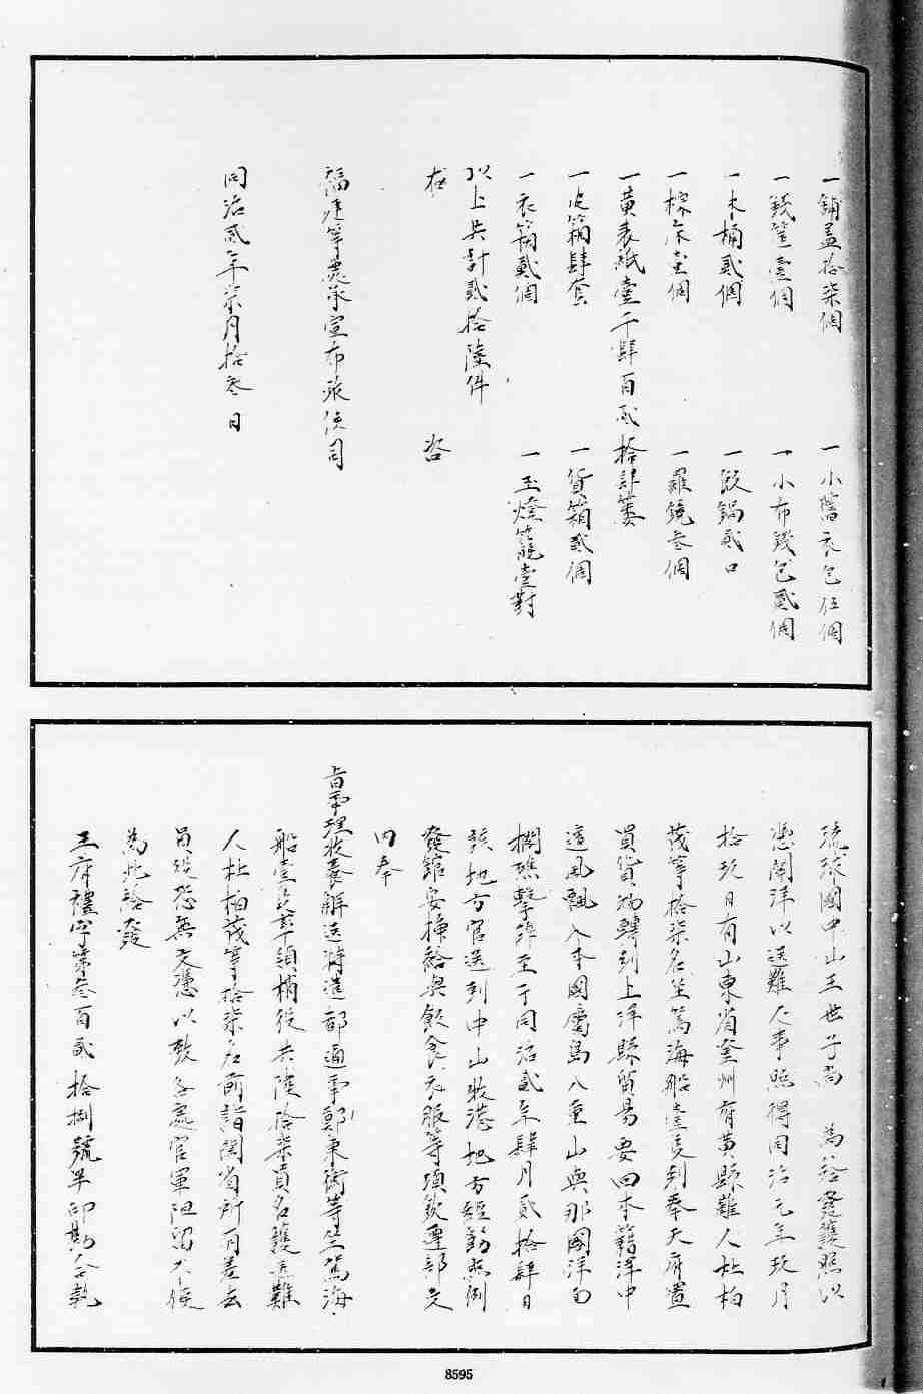 一鋪蓋拾柒個　一小舊衣包伍個
一錢筐壹個　一小布錢包貳個
一木桶貳個　一飯鍋貳口
一棕衣壹個　一羅鏡叁個
一黃表紙壹千肆百貳拾肆簍
一皮箱肆套　一貨箱貳個
一衣箱貳個　一玉燈籠壹對
以上共計貳拾陸件
右　咨
福建等處承宣布政使司
同治貳年柒月拾叁日
琉球國中山王世子尚　為給發護照以
憑關津以送難人事照得同治元年玖月
拾玖日有山東省登州府黃縣難人杜柏
茂等拾柒名坐駕海船壹隻到奉天府置
買貨物轉到上洋縣貿易要回本籍洋中
遭風飄入本國屬島八重山與那國洋面
擱礁擊碎至于同治貳年肆月貳拾肆日
該地方官送到中山收港地方經飭照例
發館安插給與飲食衣服等項欽遵部文
內奉
旨事理收養解送特遣都通事鄭秉衡等坐駕海
船壹隻率領梢役共陸拾柒員名護送難
人杜柏茂等拾柒名前詣閩省所有差去
員役恐無文憑以致各處官軍阻留不便
為此給發
王府禮字第叁百貳拾捌號半印勘合執
8595